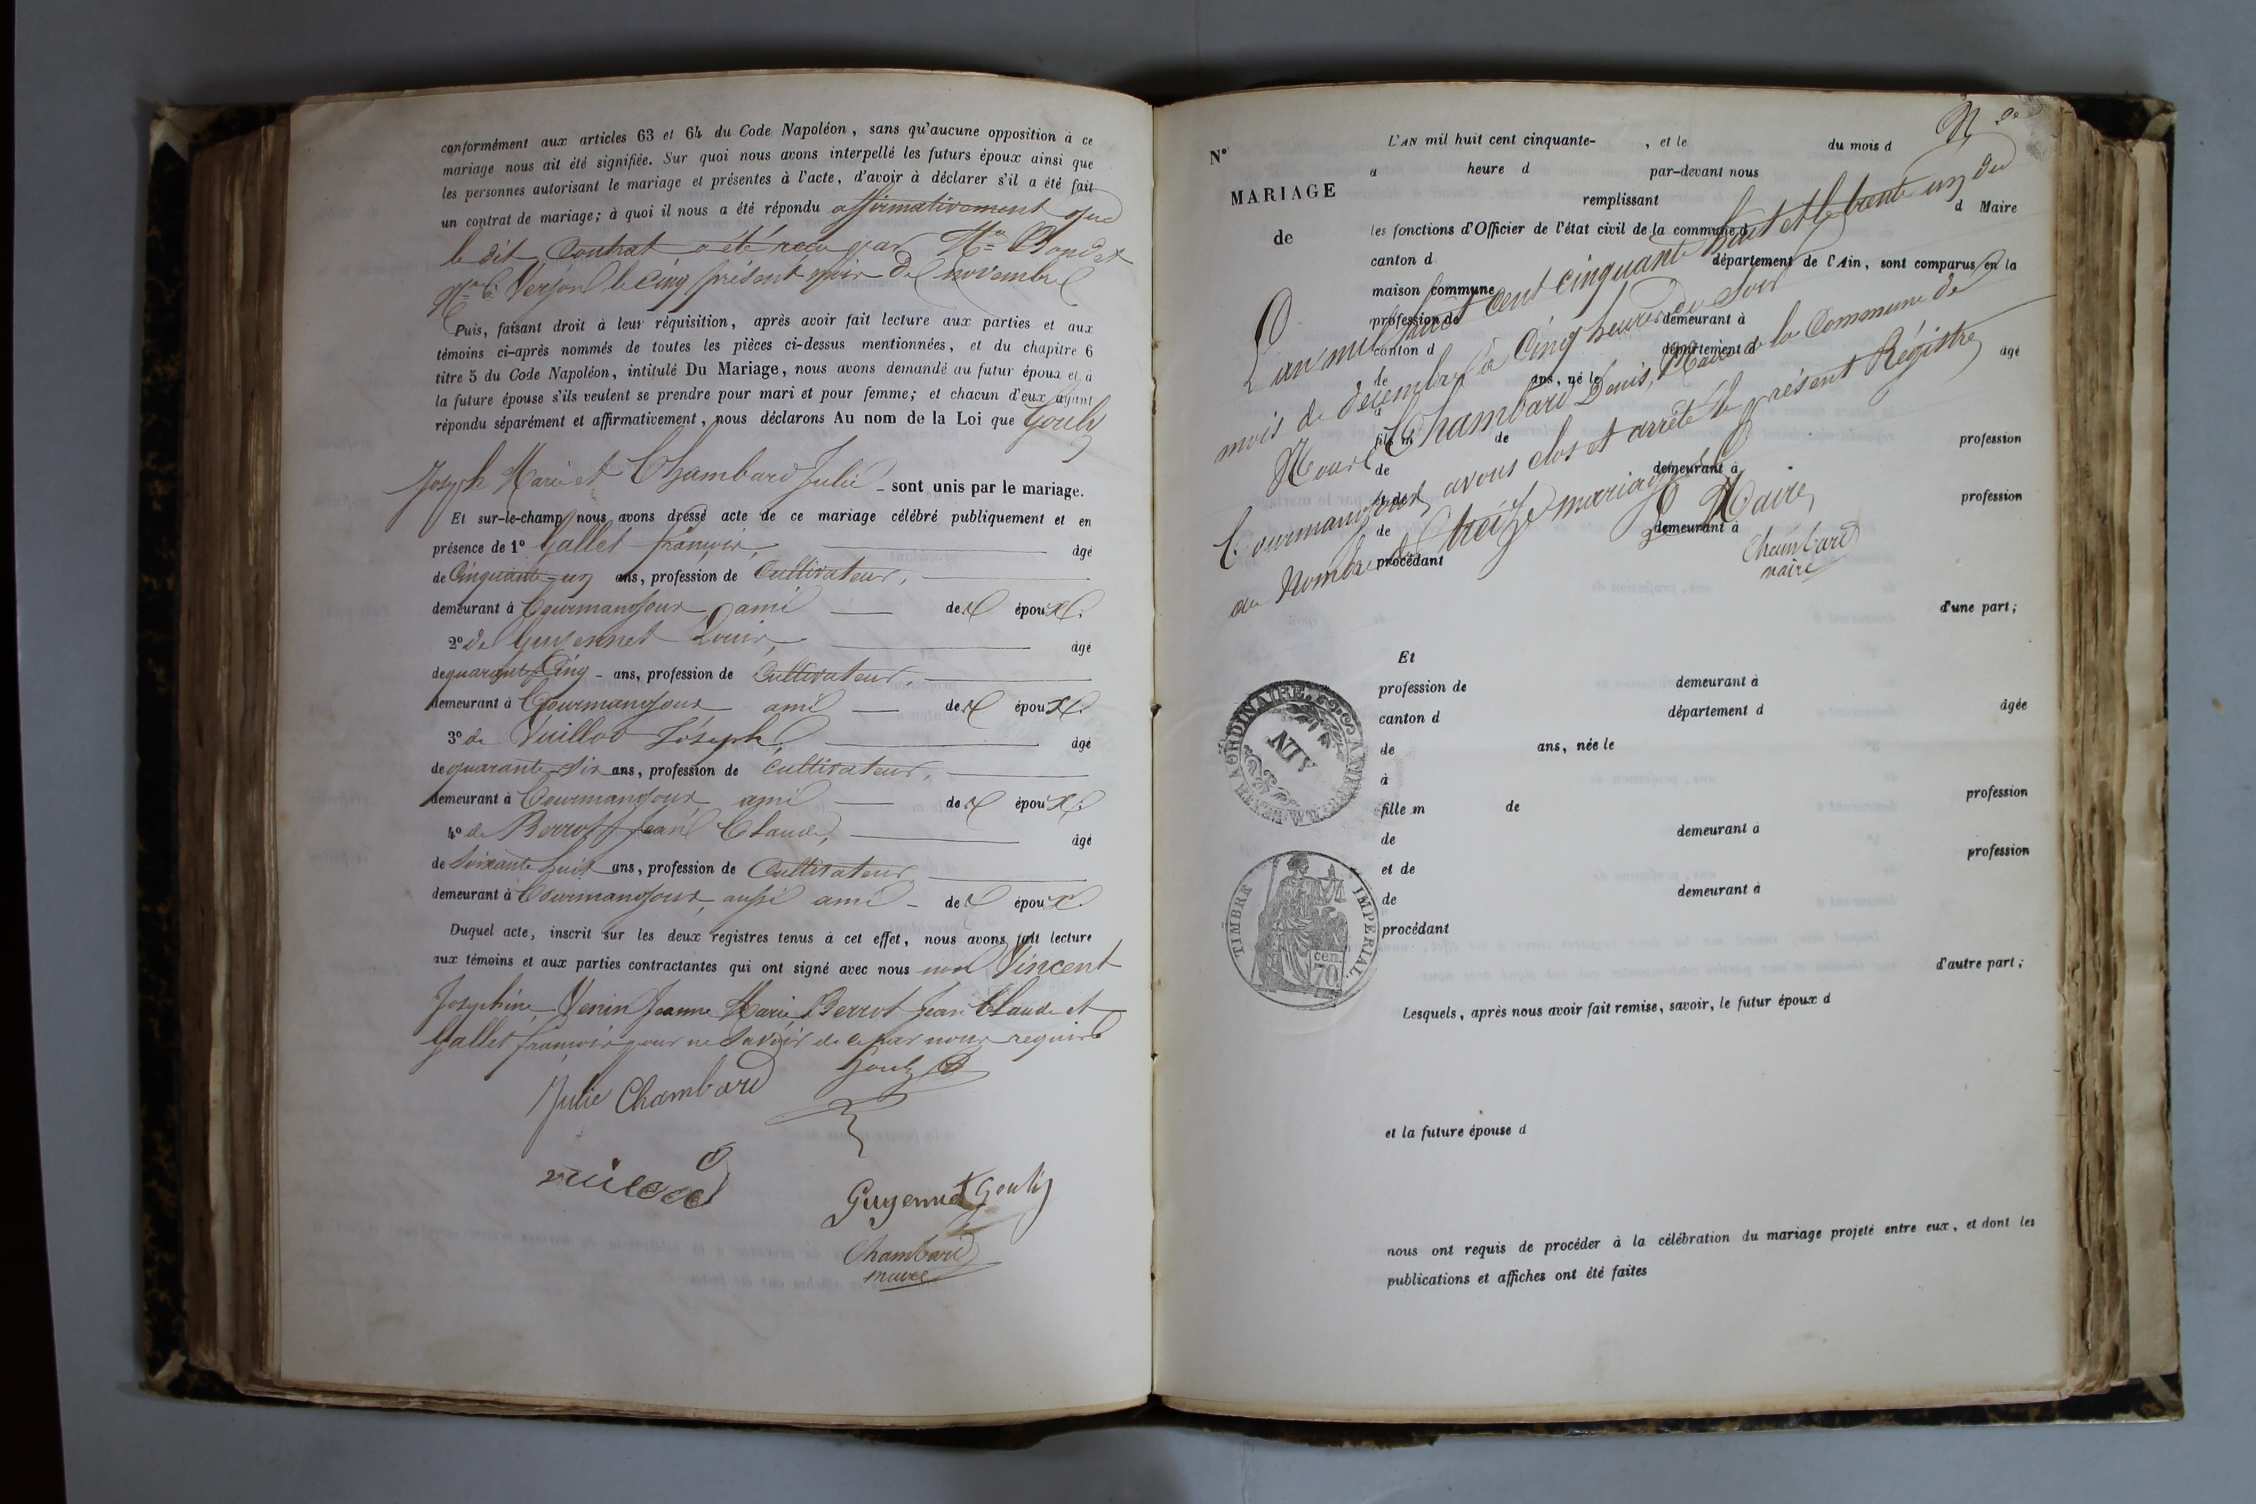 conformément aux articles 63 et 64 du Code Napoléon, sans qu'aucune opposition à ce
mariage nous ait été signifiée. Sur quoi nous avons interpellé les futurs époux ainsi que
les personnes autorisant le mariage et présentes à l'acte, d'avoir à déclarer s'il a été fait
un contrat de mariage; à quoi il nous a été répondu affirmativement que
le dit Contrat a été reçu par
le Cinq présent mois de novembre
Puis, faisant droit à leur réquisition, après avoir fait lecture aux parties et aux
témoins ci-après nommés de toutes les pièces ci-dessus mentionnées, et du chapitre 6
titre 5 du Code Napoléon, intitulé Du Mariage, nous avons demandé au futur époux et à
la future épouse s'ils veulent se prendre pour mari et pour femme; et chacun d'eux ayant
répondu séparément et affirmativement, nous déclarons Au nom de la Loi que Gouly
Joseph Marie et Chambard Julie sont unis par le mariage.
Et sur-le-champ nous avons dressé acte de ce mariage célébré publiquement et en
présence de 1° Gallet françois, âgé
de Cinquante-un ans, profession de Cultivateur,
demeurant à Courmangoux ami des époux.
2° de Guyennet Louis, âgé
de quarante Cinq ans, profession de Cultivateur,
demeurant à Courmangoux ami des époux.
3° de Vuillod Joseph, âgé
de quarante-six ans, profession de Cultivateur,
demeurant à Courmangoux, ami des époux.
4° de Berrot Jean Claude, âgé
de soixante huit ans, profession de Cultivateur
demeurant à Courmangoux, aussi ami des époux.
Duquel acte, inscrit sur les deux registres tenus à cet effet, nous avons fait lecture
aux témoins et aux parties contractantes qui ont signé avec nous non Vincent
Josephine, Jeanne Marie, Berrot Jean Claude et
Gallet françois pour ne savoir de ce par nous requis
Julie Chambard
Gouly
Guyennet Gouly
Chambard
maire
N°
MARIAGE
de
L'AN mil huit cent cinquante- , et le du mois d
a heure d par-devant nous
remplissant
d Maire
les fonctions d'Officier de l'état civil de la commune d
canton d département de l'Ain, sont comparus en la
maison commune
profession de demeurant à
canton d département d
âgé
de ans, né le
à
fils m de
profession
de demeurant à
et de
profession
de demeurant à
procédant
d'une part;
L'an mil huit cent cinquante huit et le trente un du
mois de décembre à Cinq heures du Soir
Nous Chambard Denis, Maire de la Commune de
Courmangoux, avons clos et arrêté le présent Régistre
au Nombre de treize mariages
Le Maire,
Chambard
maire
Et
profession de demeurant à
canton d département d
âgée
de ans, née le
à
fille m de
profession
de demeurant à
et de
profession
de demeurant à
procédant
d'autre part;
AIN
TIMBRE IMPERIAL.
70 cen.
Lesquels, après nous avoir fait remise, savoir, le futur époux d
et la future épouse d
nous ont requis de procéder à la célébration du mariage projeté entre eux, et dont les
publications et affiches ont été faites